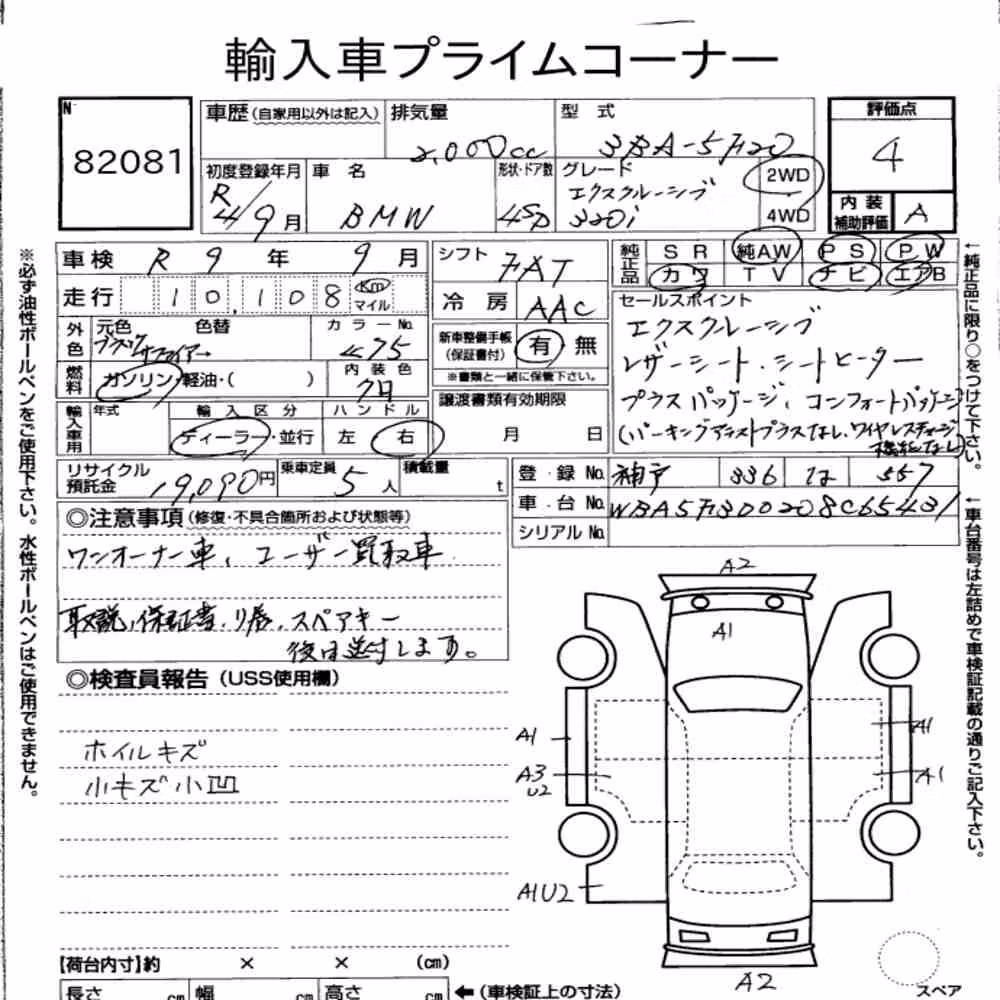 輸入車プライムコーナー
N
82081
車歴 (自家用以外は記入)
排気量 2,000cc
型式 3BA-5F20
評価点
4
初度登録年月 R4/9月
車名 BMW
形状・ドア数 4SD
グレード エクスクルーシブ 320i
2WD
4WD
内装補助評価 A
車検 R9年9月
走行 10,108 Km マイル
外色 元色 ブラックサファイアー 色替
カラーNo. 475
燃料 ガソリン・軽油・( )
内装色 クロ
輸入車用 年式
輸入区分 ディーラー・並行
ハンドル 左 右
シフト 7AT
冷房 AAC
新車整備手帳 (保証書付) 有 無
※書類と一緒に保管下さい。
譲渡書類有効期限
月 日
純正品 SR 純AW PS PW
カワ TV ナビ エアB
セールスポイント
エクスクルーシブ
レザーシート、シートヒーター
プラスパッケージ、コンフォートパッケージ
(パーキングアシストプラスなし、ワイヤレスチャージ
機能なし)
リサイクル預託金 19,090円
乗車定員 5人
積載量 t
登録No. 神戸 336 557
車台No. WBA5F3D0208C65431
シリアルNo.
◎注意事項 (修復・不具合箇所および状態等)
ワンオーナー車、ユーザー買取車
取説、保証書、リ券、スペアキー
後日送付します。
◎検査員報告 (USS使用欄)
ホイルキズ
小キズ小凹
A2
A1
A1
A1
A3
U2
A1
A1U2
A2
【荷台内寸】約 × × (cm)
長さ cm 幅 cm 高さ cm
←(車検証上の寸法)
スペア
※必ず油性ボールペンをご使用下さい。水性ボールペンはご使用できません。
←純正品に限り○をつけて下さい。
←車台番号は左詰めで車検証記載の通りご記入下さい。